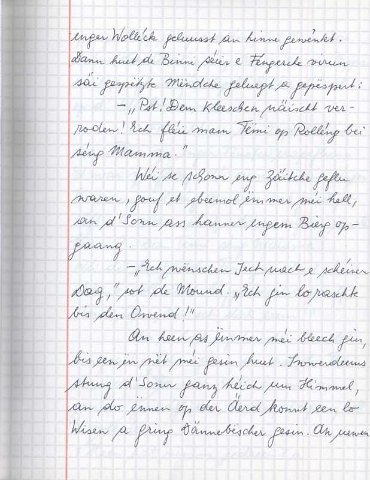 enger Wolléck geluusst an hinne gewénkt.
Dann huet de Binni séier e Fengerche virun
säi gespëtzte Mëndche geluegt a gepëspert:
– „Pst! Dem Kleeschen näischt ver-
roden! Ech fléi mam Tëmi op Rolléng bei
séng Mamma."
Wéi se schonn eng Zäitche geflu
waren, gouf et ebemol ëmmer méi hell,
an d'Sonn ass hanner engem Bierg op-
gaang.
– „Ech wënschen Iech uecht e schéiner
Dag," sot de Mound. „Ech gin lo raschte
bis den Owend!"
An heen as ëmmer méi bleech gin,
bis een en nët méi gesin huet.
stung d'Sonn ganz héich um Himmel,
an do ënnen op der Äerd konnt een lo
Wisen a gring Dännebëscher gesin. An